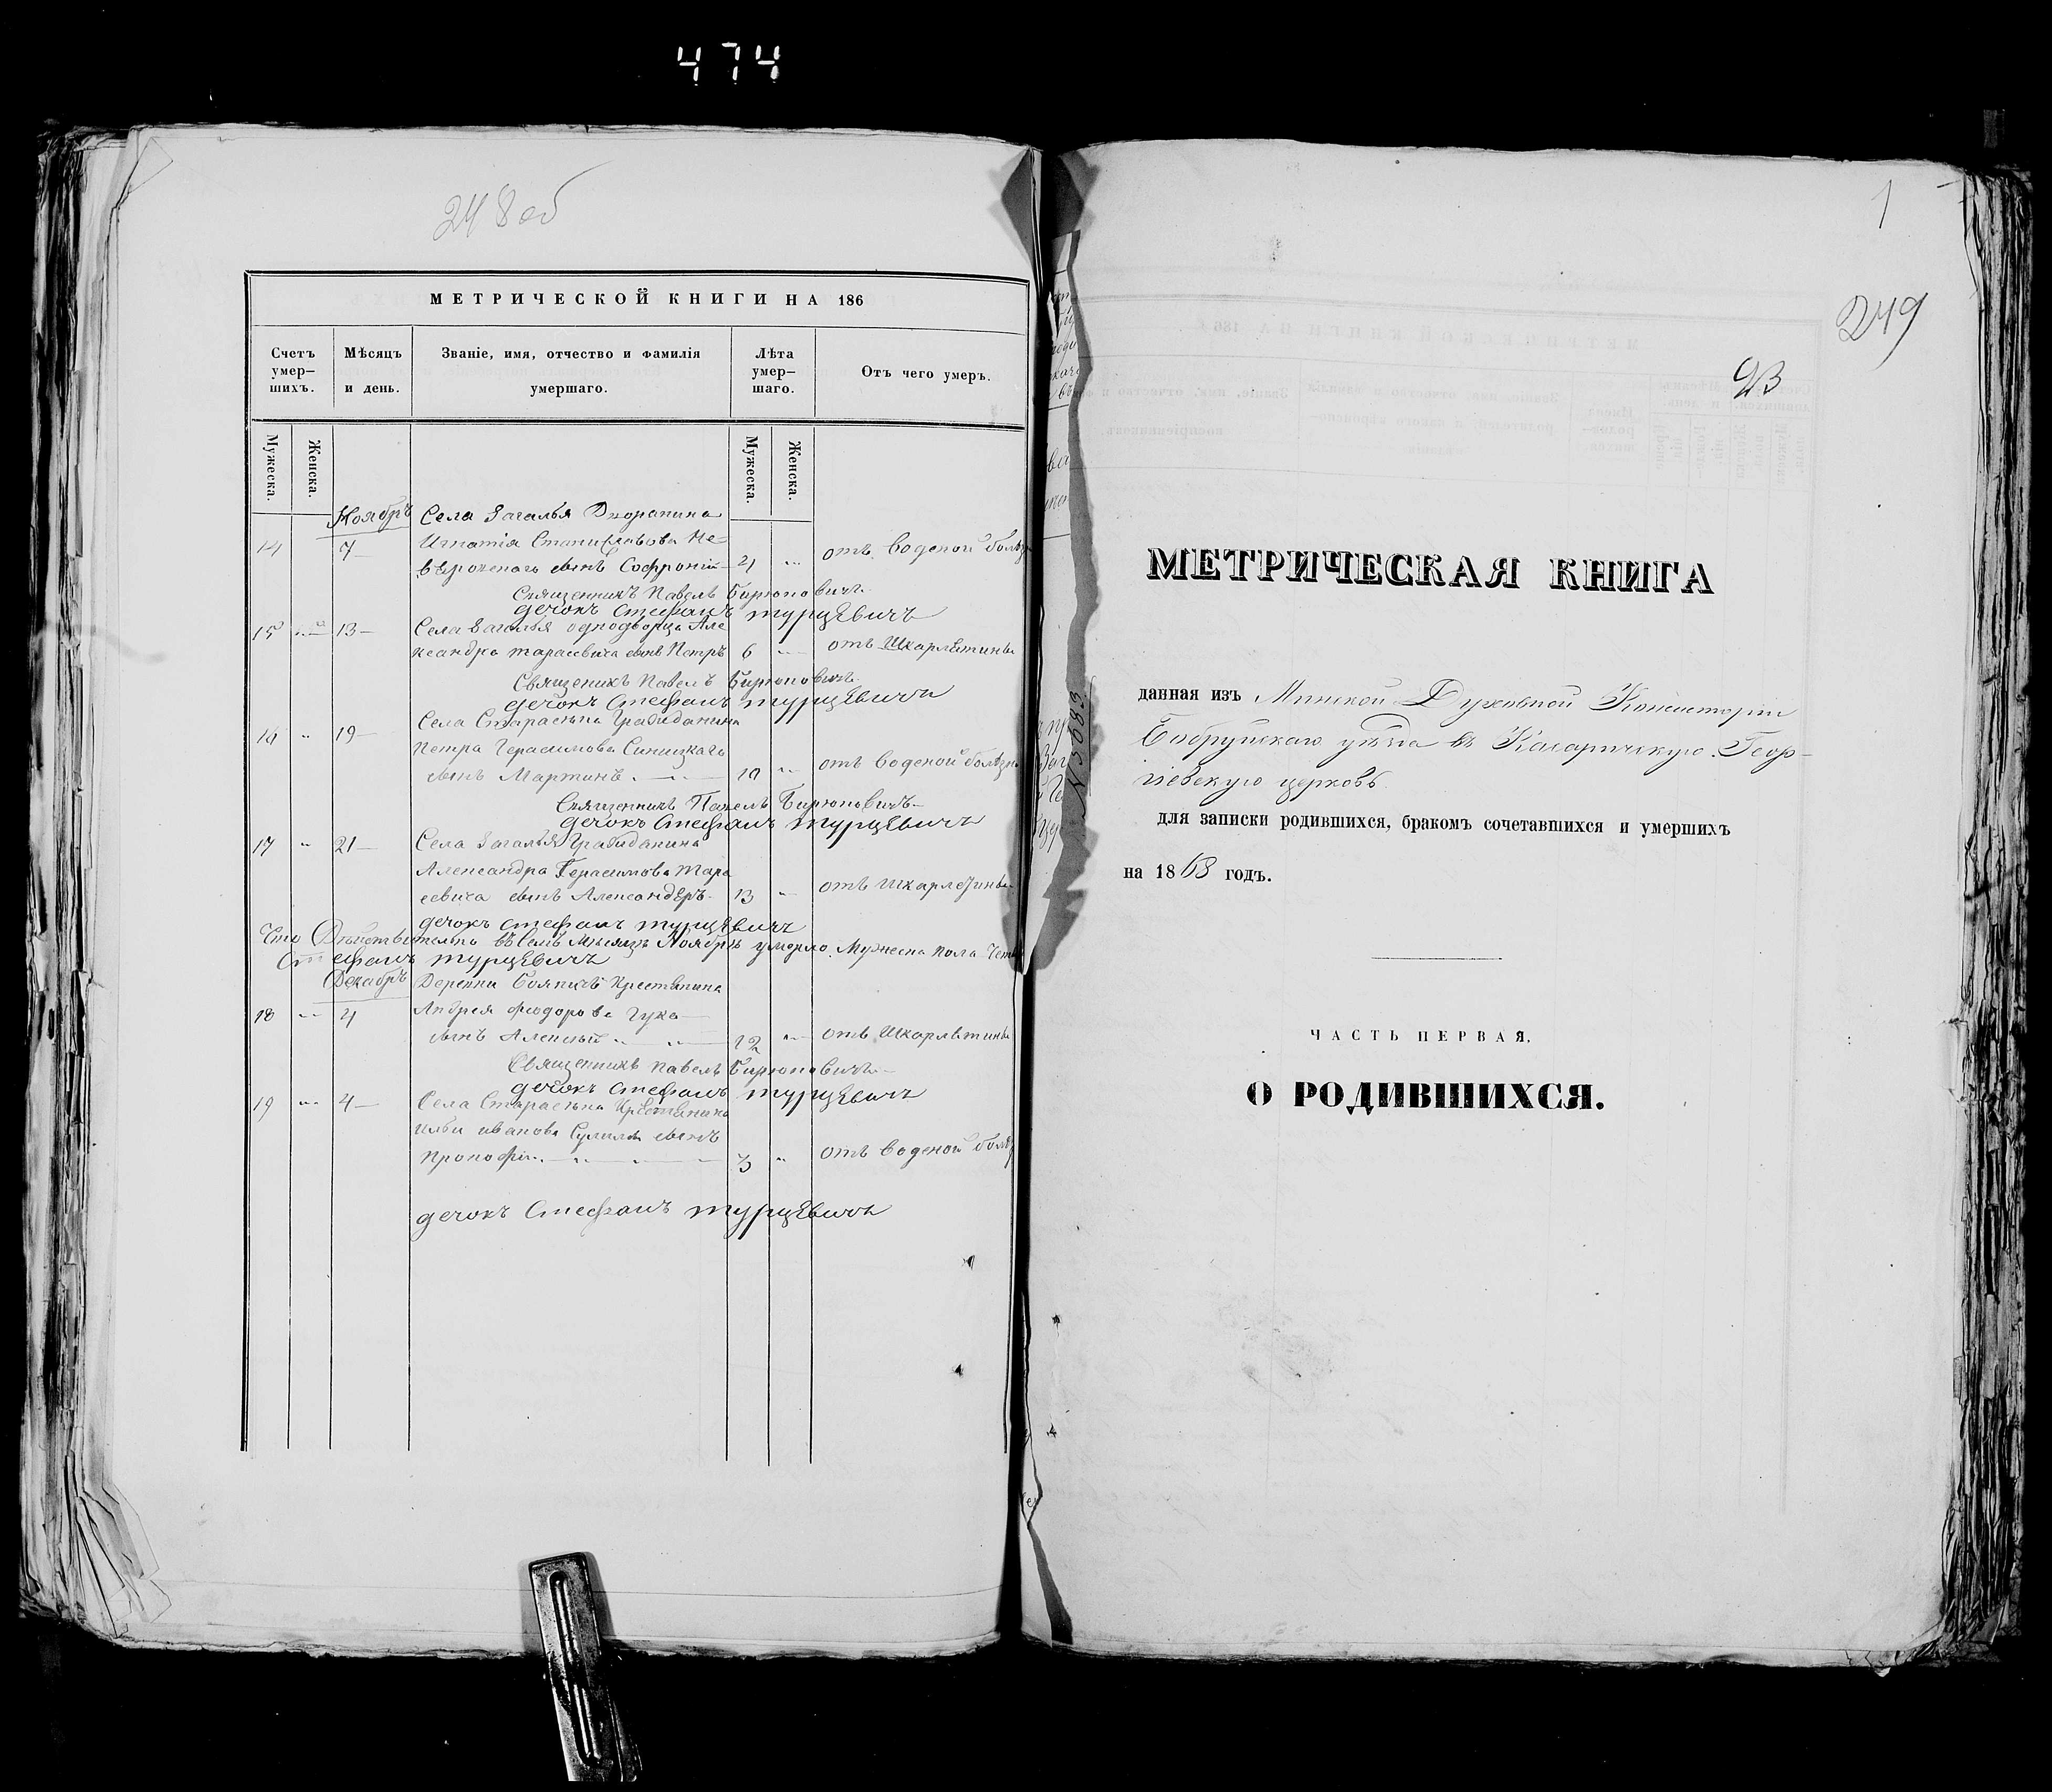 474
248 об
МЕТРИЧЕСКОЙ КНИГИ НА 186
Счетъ умер–шихъ.
Мѣсяцъ и день.
Званіе, имя, отчество и фамилія умершаго.
Лѣта умер–шаго.
Отъ чего умеръ.
Мужеска.
Женска.
Мужеска.
Женска.
Ноябрь Села Загалья Дворанина
14 7 Игнатія Станиславова Не-
сынъ Софроній 4 отъ воденой
Священникъ Павелъ Бирюковичъ
дечокъ Стефанъ турцЕвичъ
15 13 Села Загалья однодворца Але
ксандра тарасевича сынъ Петръ 6 отъ Шкарлѣтины
Священикъ Павелъ Бирюковичъ
дечокъ Стефанъ турцЕвичъ
19 Села Старасѣкъ Гражданина
Петра Герасимова Синицкаго
сынъ Мартинъ 10 отъ воденой болѣзн
Священникъ Павелъ Бирюковичъ
дечокъ Стефанъ турцЕвичъ
17 21 Села Загалья Гражданина
Александра Герасимова Тара
севича сынъ Александеръ 13 отъ Шкарлетины
дечокъ Стефанъ турцЕвичъ
Что Дѣйствительно въ семъ Мѣсяцѣ Ноябрѣ умерло Мужеска пола
Стефанъ турцЕвичъ
Декабрь Деревни Крестьянина
18 4 Андрея Феодорова
сынъ Алексѣй 12 отъ Шкарлѣтины
Священикъ Павелъ Бирюковичъ
дечокъ Стефанъ турцЕвичъ
19 4 Села
Ильи иванова сынъ
Прокофій 3 отъ воденой
дечокъ Стефанъ турцЕвичъ
1
249
23
№ 3083
МЕТРИЧЕСКАЯ КНИГА
данная изъ Минской Духовной Консисторіи
Бобруйскаго уѣзда въ Касаричскую Геор-
гіевскую церковь
для записки родившихся, бракомъ сочетавшихся и умершихъ
на 1863 годъ.
ЧАСТЬ ПЕРВАЯ.
О РОДИВШИХСЯ.